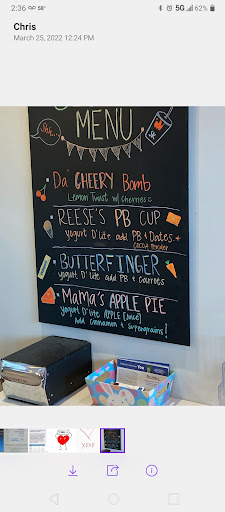 2:36
58°
5G
62%
Chris
March 25, 2022 12:24 PM
MENU
Da' CHEERY Bomb
Lemon Twist w/ Cherries
REESE'S PB CUP
yogurt D'lite add PB & Dates +
BUTTERFINGER
yogurt D'lite add PB & Carrots
MAMA'S APPLE PIE
yogurt D'lite APPLE (Juice)
Add Cinnamon & Supergrains!